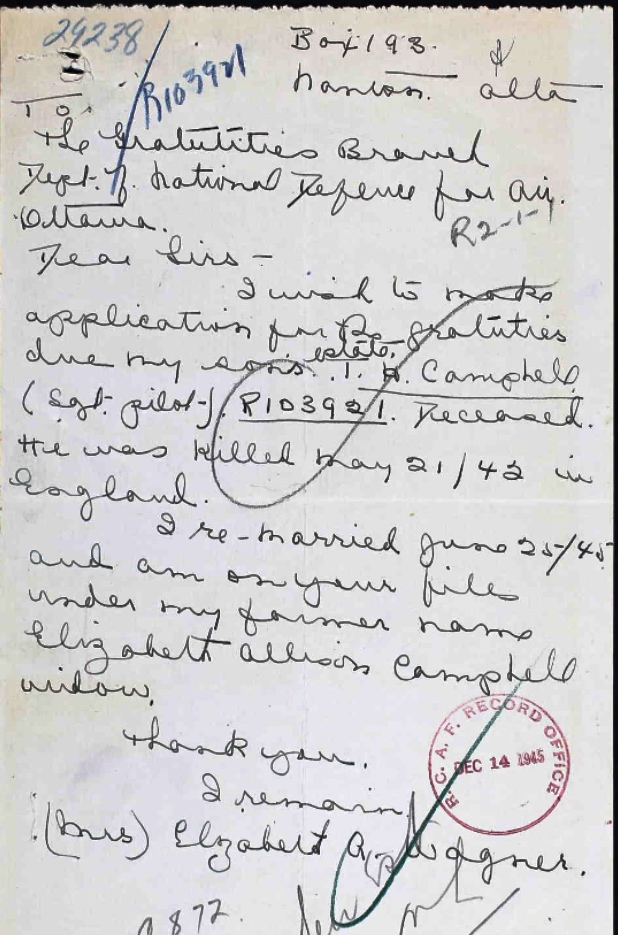 29238
R103921
Box 193.
Nanton. Alta
The Gratutities Branch
Dept. of National Defence for Air.
Ottawa.
R2-1-1
Dear Sirs -
I wish to make
application for the gratuties
due my sons estate. I. A. Campbell
(Sgt. pilot-) R103921. Deceased.
He was killed May 21/42 in
England.
I re-married June 25/45
and am on your files
under my former name
Elizabeth Allison Campbell
widow.
Thank you.
I remain
(Mrs) Elizabeth A. Wagner.
R.C.A.F. RECORD OFFICE
DEC 14 1945
872